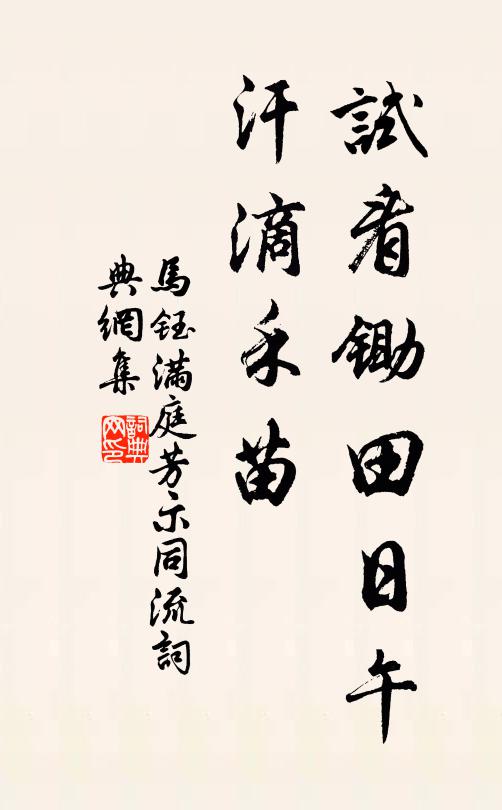 試看鋤田日午
汗滴禾苗
馬鈺滿庭芳示同流詞
典網集
詞典网印